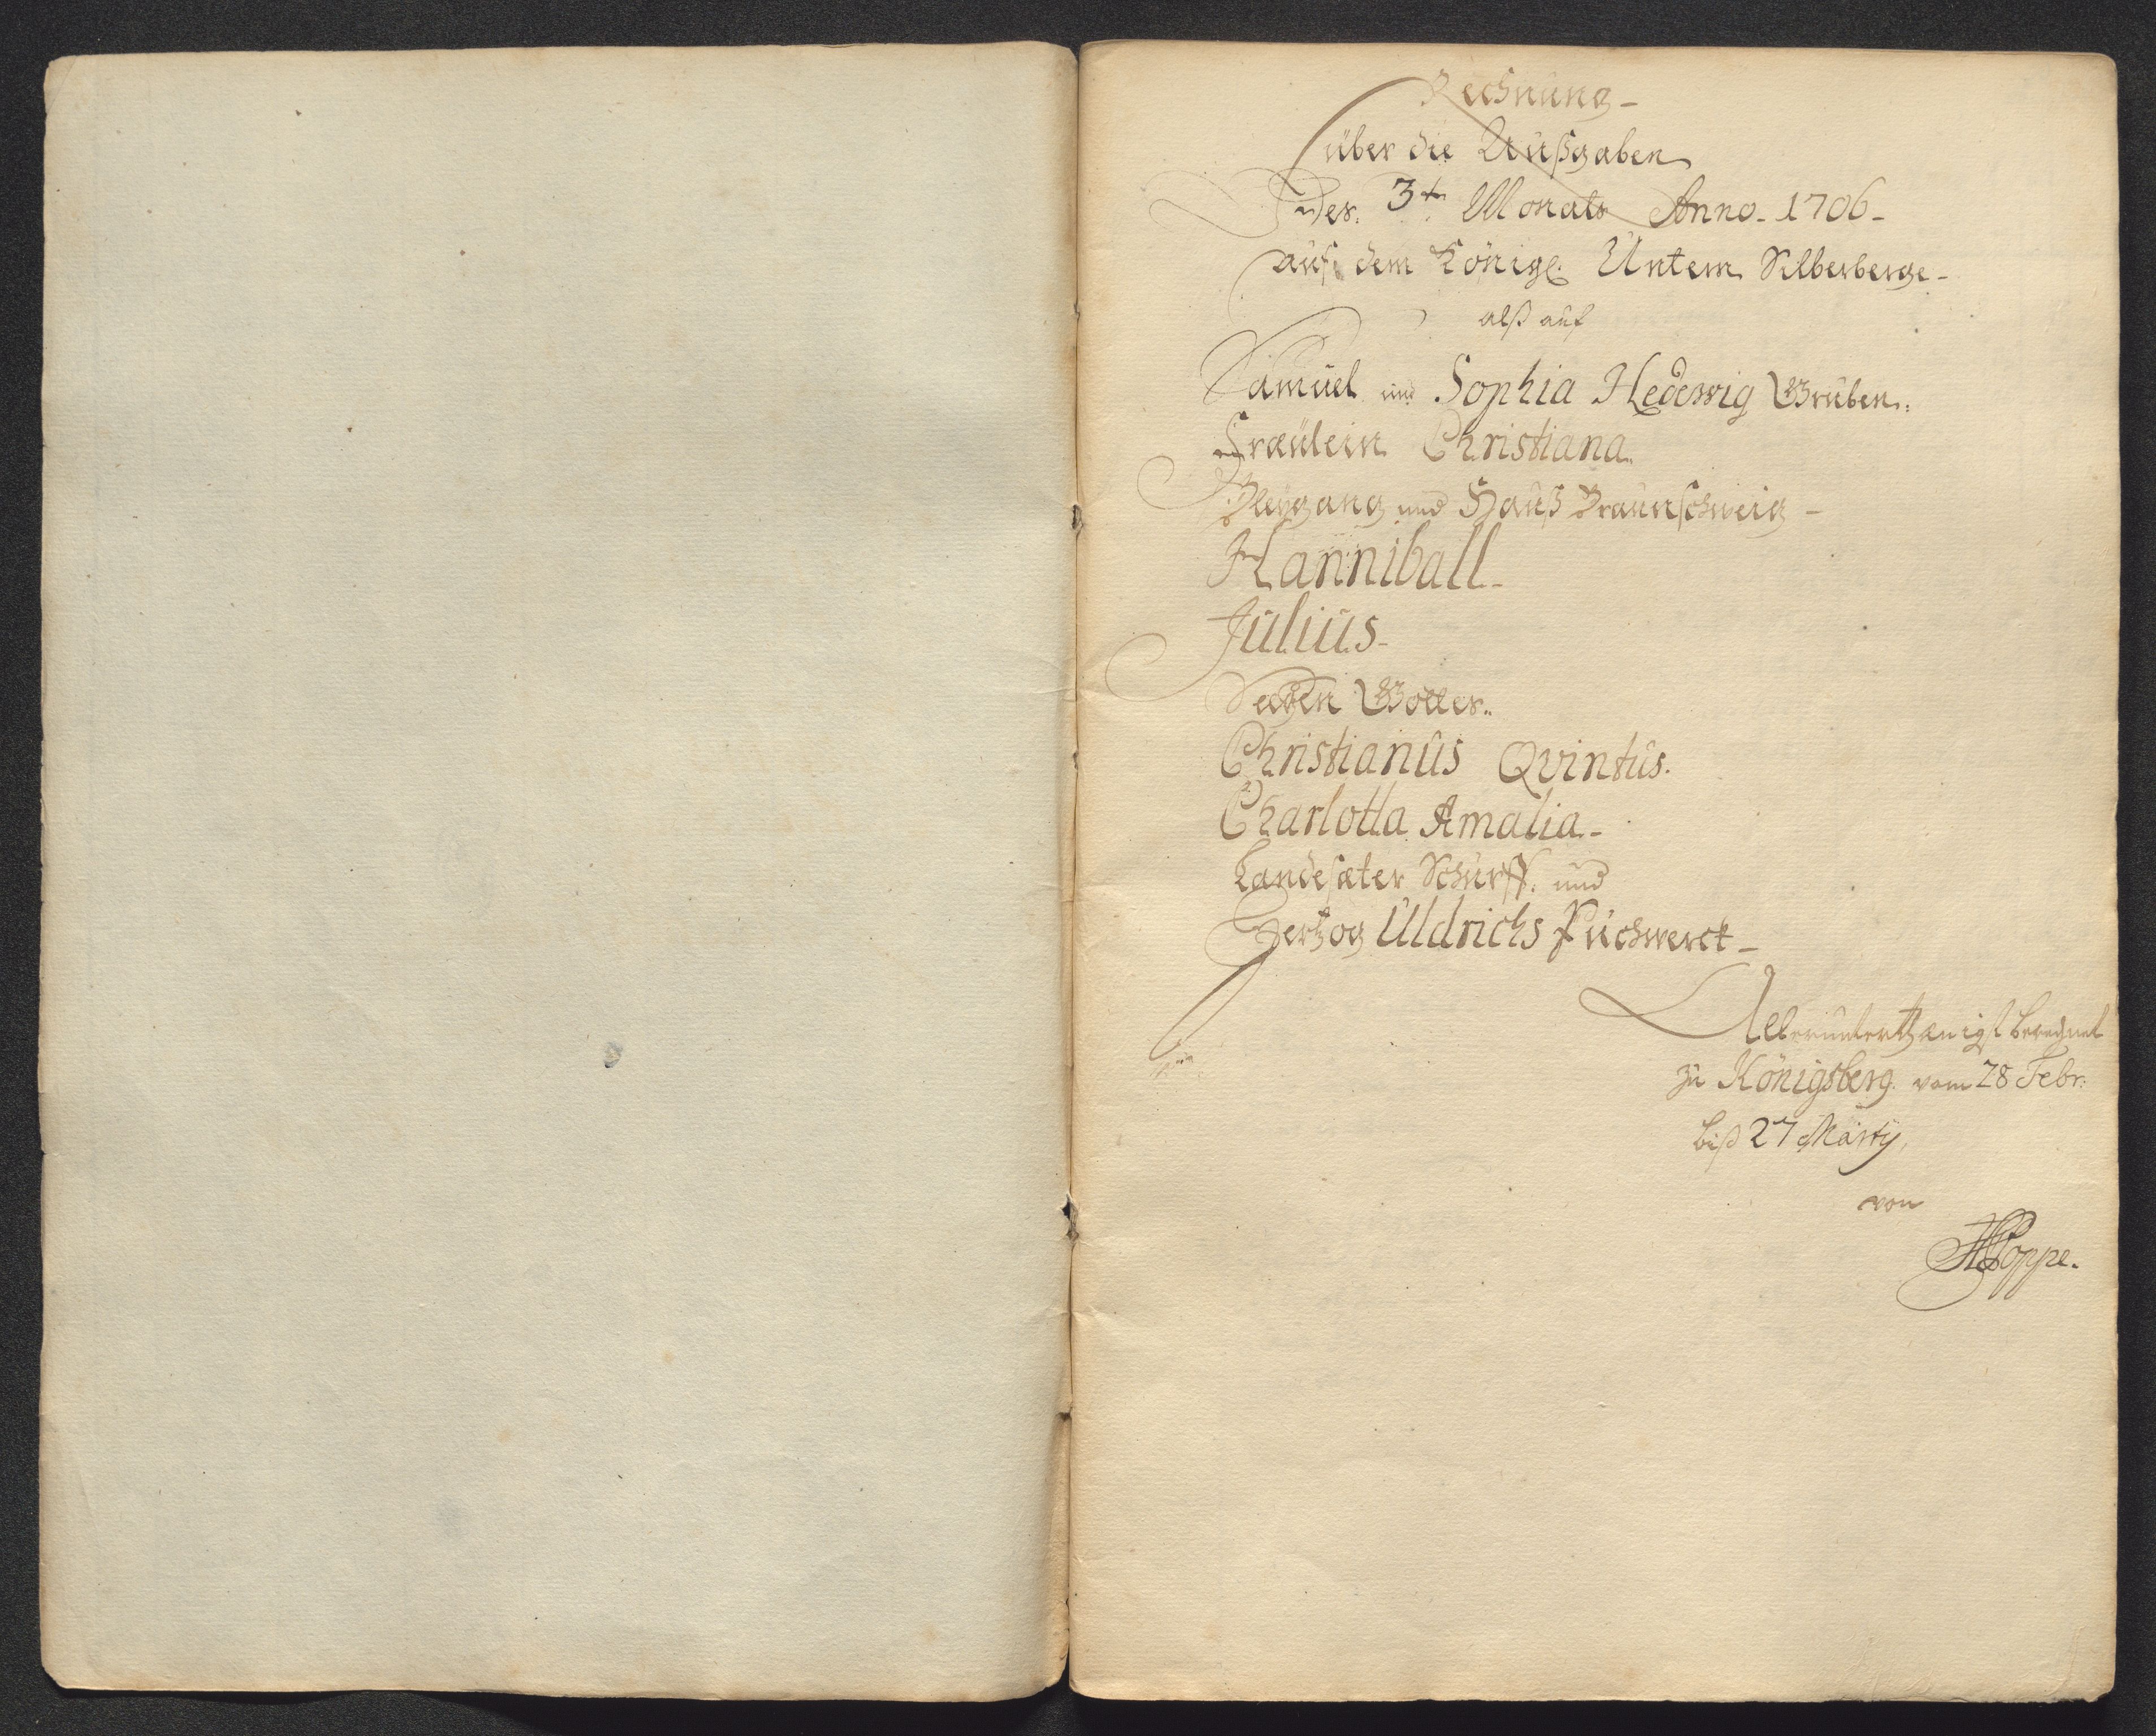 Rechnung
über die Außgaben
Des 3t Monats Anno 1706
auf dem Königl. Untern Silberberge
alß auf
Samuel und Sophia Hedewig Gruben.
Fræülein Christiana
Bleygang und Hauß Braunschweig
Hanniball
Julius
Seegen Gottes.
Christianus Qvintus.
Charlotta Amalia
Landesæter Schurff. und
Hertzog Uldrichs Puchwerck
Allerunterthænigst berechnet
zu Königsberg vom 28 Febr:
biß 27 Marty
von
HPoppe.